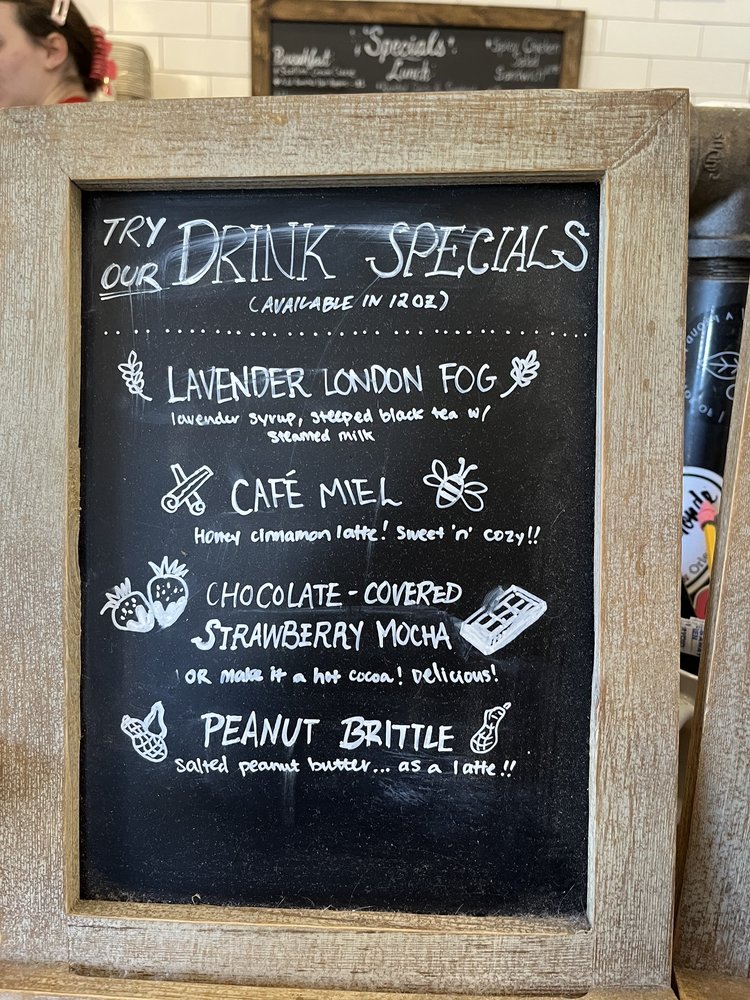 Breakfast
Specials
Lunch
Spicy Chicken
Salad
Sandwich
TRY
OUR DRINK SPECIALS
(AVAILABLE IN 12OZ)
LAVENDER LONDON FOG
lavender syrup, steeped black tea w/
steamed milk
CAFÉ MIEL
Honey cinnamon latte! Sweet 'n' cozy!!
CHOCOLATE-COVERED
STRAWBERRY MOCHA
OR make it a hot cocoa! Delicious!
PEANUT BRITTLE
Salted peanut butter... as a latte!!